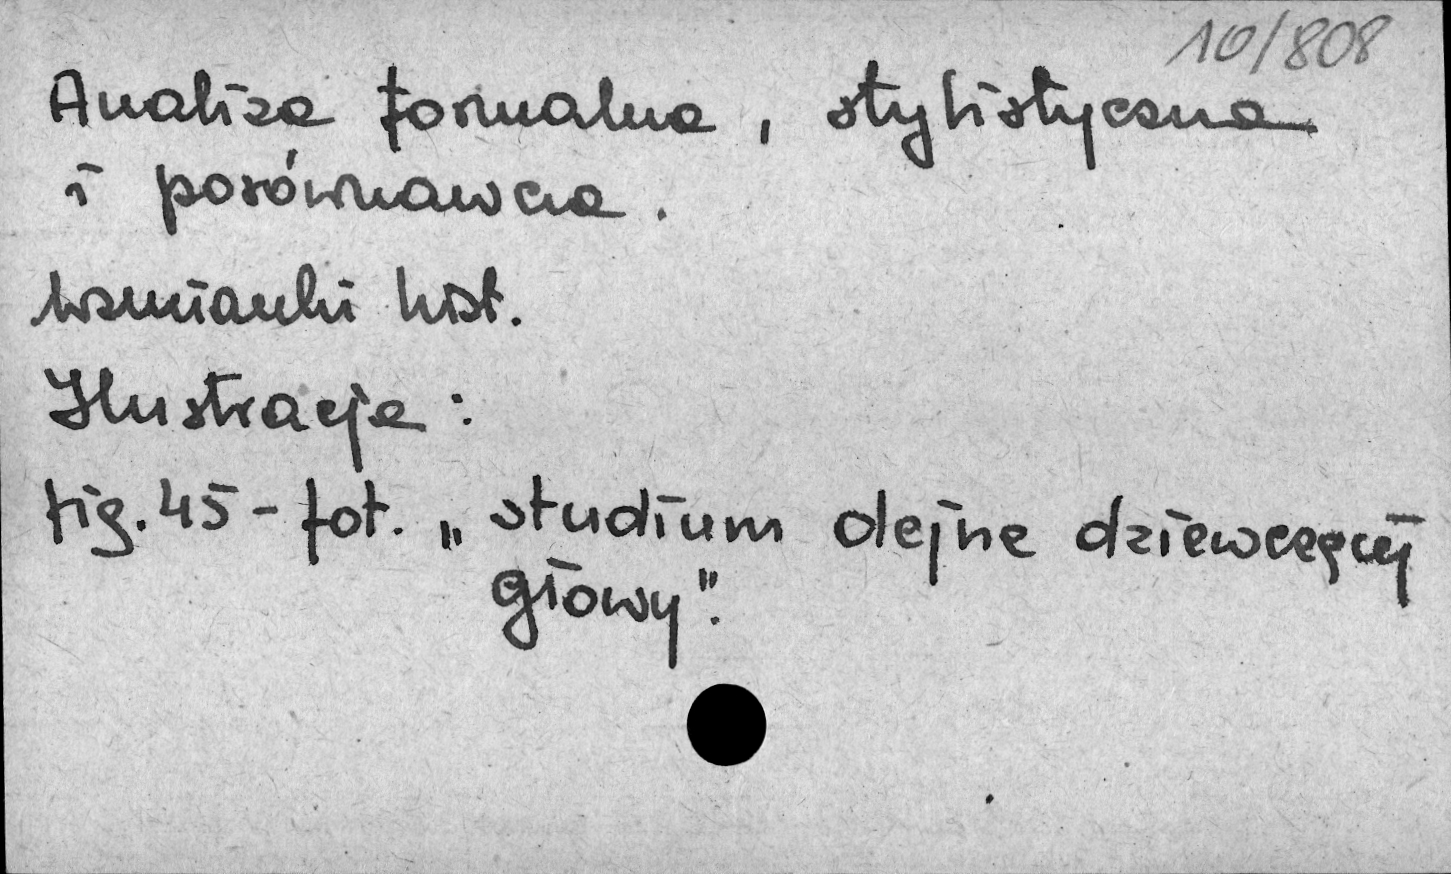 10/808
Analiza formalna, stylistyczna
i porównawcza.
wzmianki hist.
Ilustracje:
fig. 45 - fot. „studium olejne dziewczęcej
głowy".